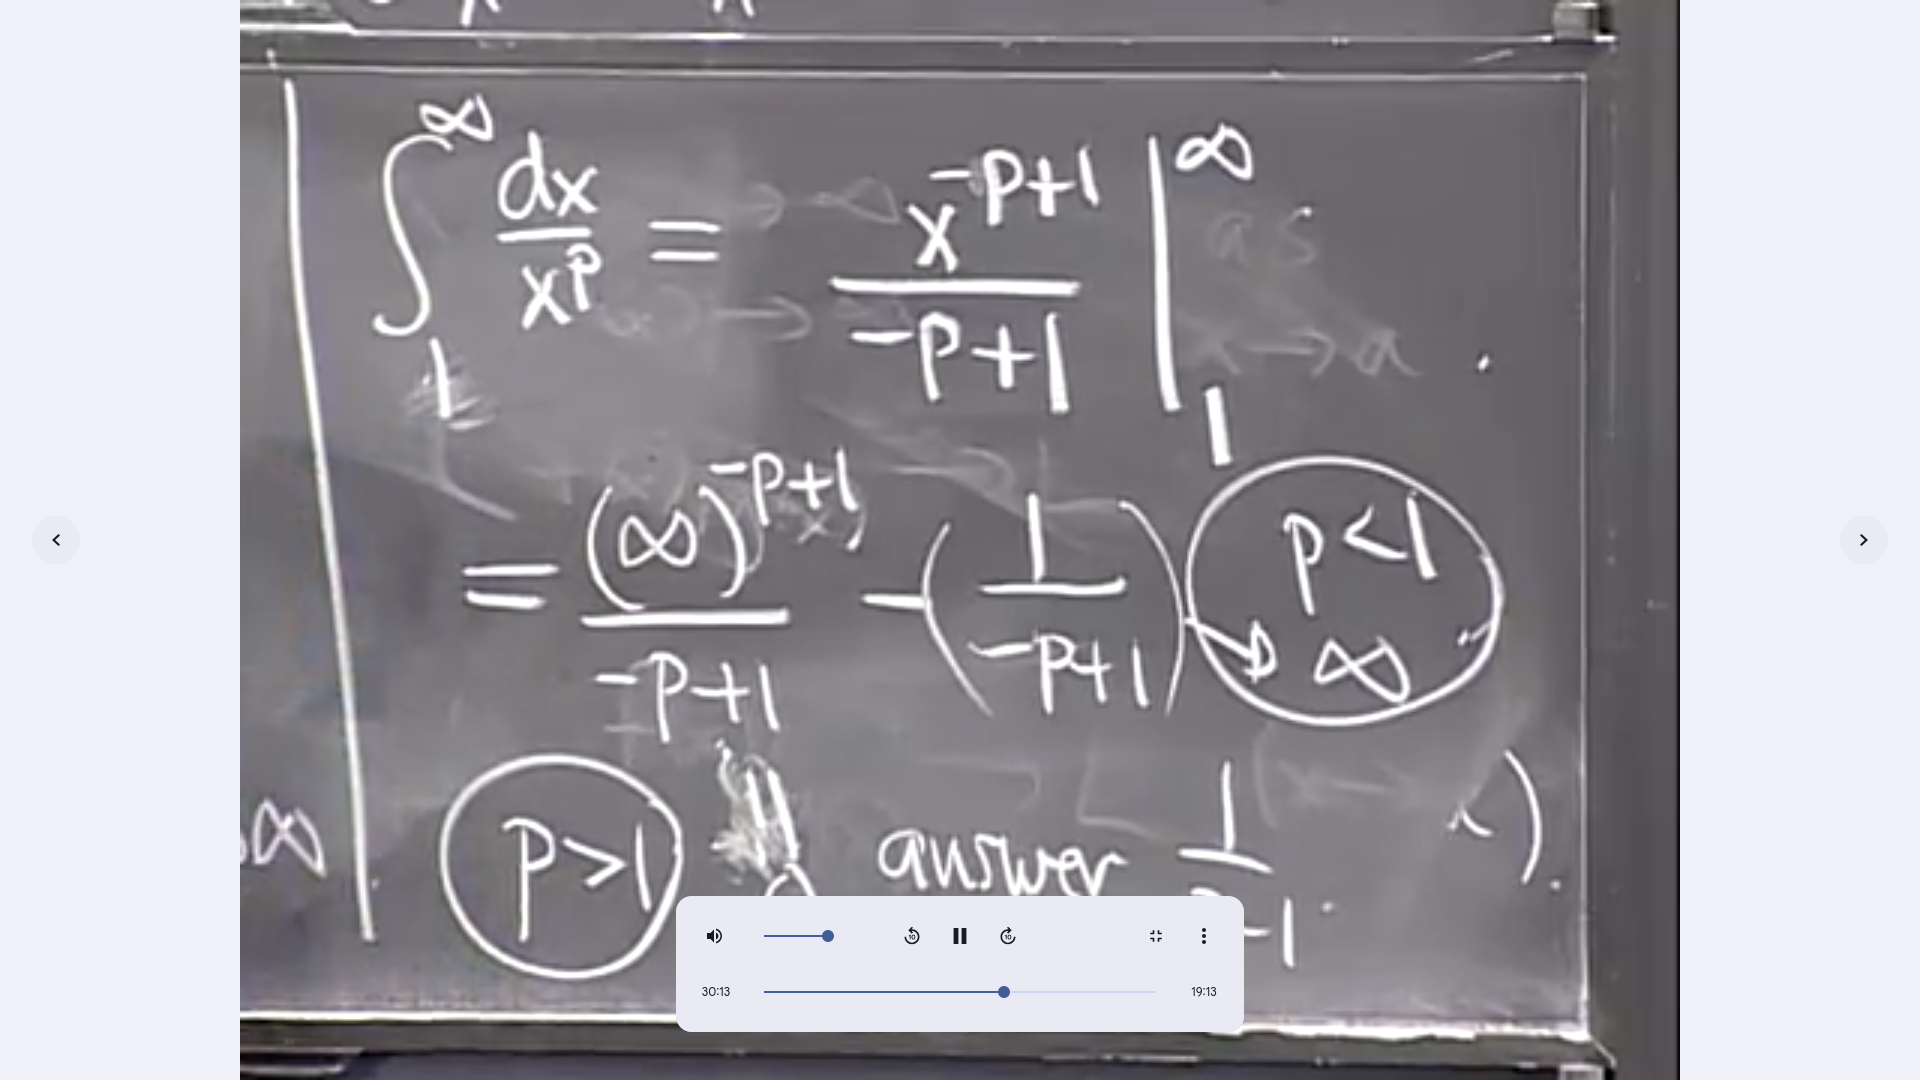 ∫₁^∞ dx/x^p = x^(-p+1)/(-p+1) |₁^∞
= (∞)^(-p+1)/(-p+1) - (1/(-p+1)) p<1 → ∞
∞ p>1 answer 1/
-1
30:13 19:13